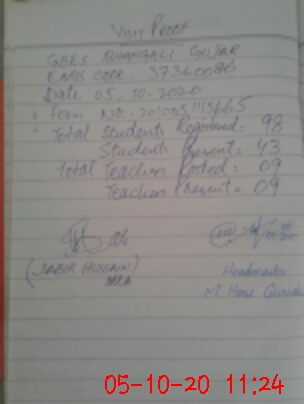 VISIT PROOF
GBES BHANGALI GUJAR
EMIS CODE - 37360086
Date 05-10-2020
Form No:-
Total Students Registered = 98
Students Present = 43
Total Teachers Posted = 09
Teachers Present = 09
(JABIR HUSSAIN)
MEA
Headmaster
M.
05-10-20 11:24